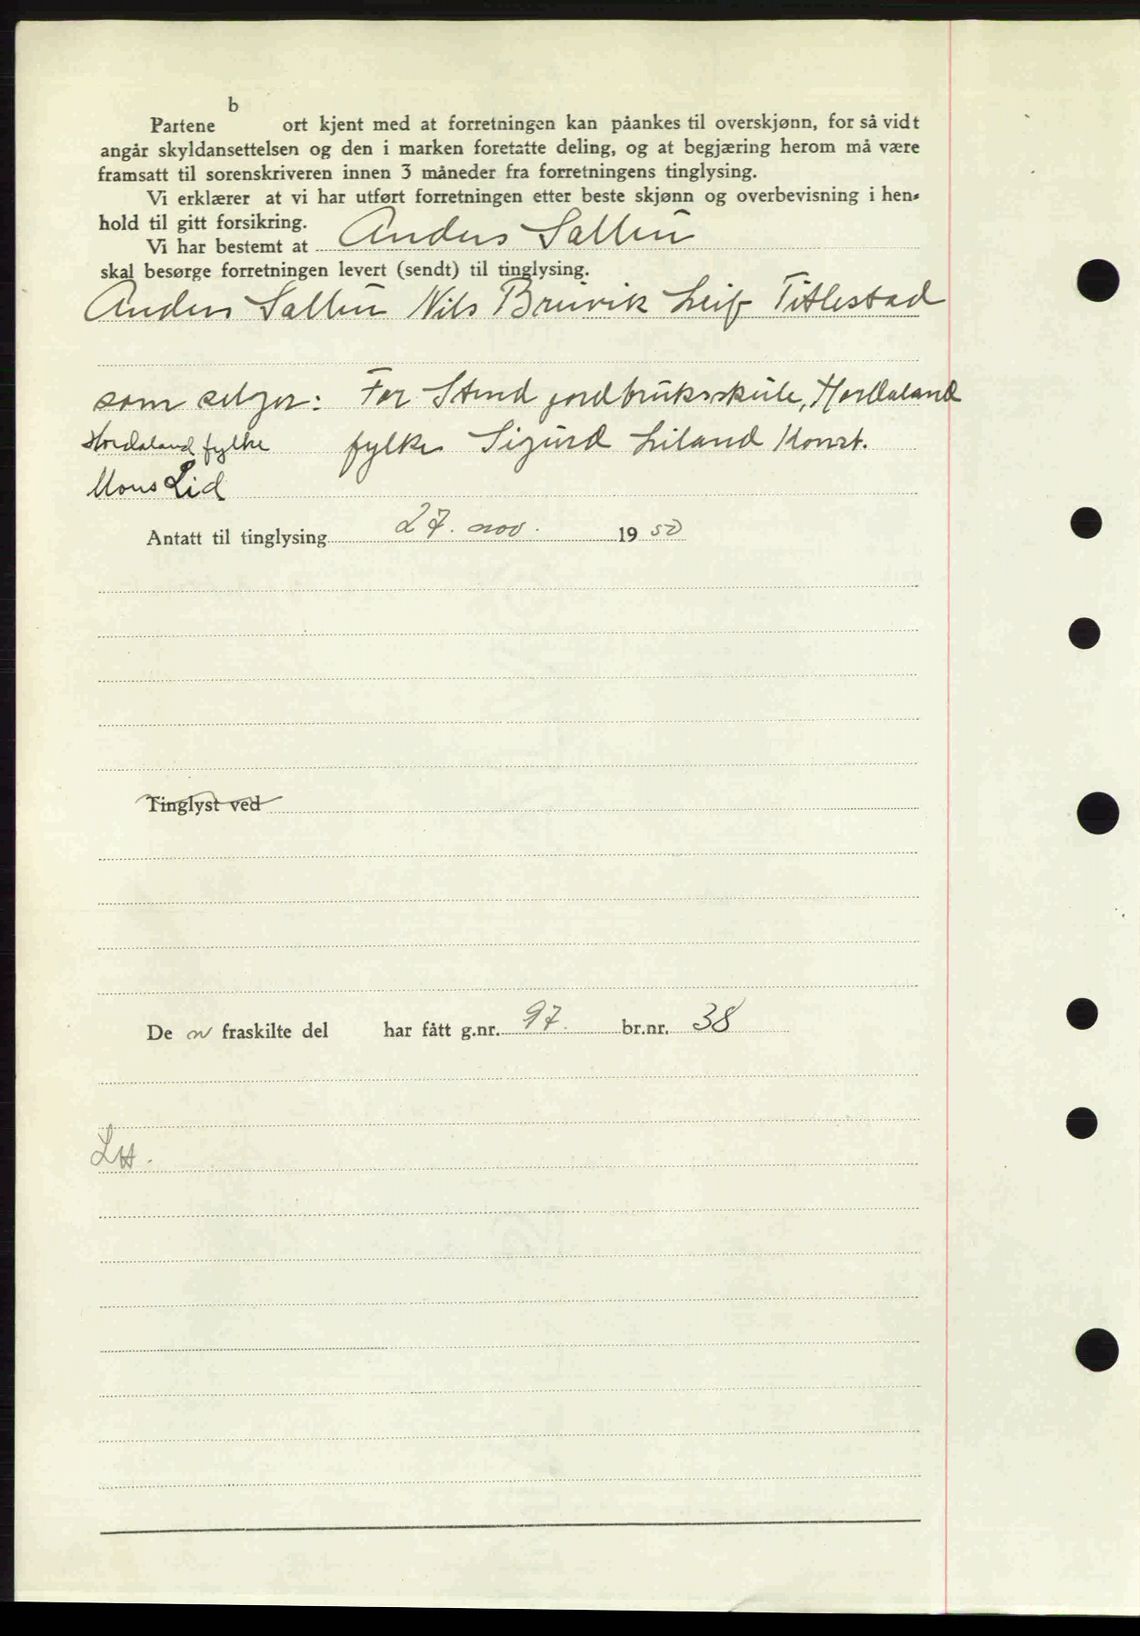 b
Partene ort kjent med at forretningen kan påankes til overskjønn, for så vidt
angår skyldansettelsen og den i marken foretatte deling, og at begjæring herom må være
framsatt til sorenskriveren innen 3 måneder fra forretningens tinglysing.
Vi erklærer at vi har utført forretningen etter beste skjønn og overbevisning i hen-
hold til gitt forsikring.
Vi har bestemt at Anders
skal besørge forretningen levert (sendt) til tinglysing.
Anders Nils Bruvik Leif Titlestad
som selger: For Stend jordbruksskule, Hordaland
Hordaland fylke fylke Sigurd Liland Konst.
Mons Lid
Antatt til tinglysing 27. nov. 1950
Tinglyst ved
De n fraskilte del har fått g.nr. 97. br.nr. 38